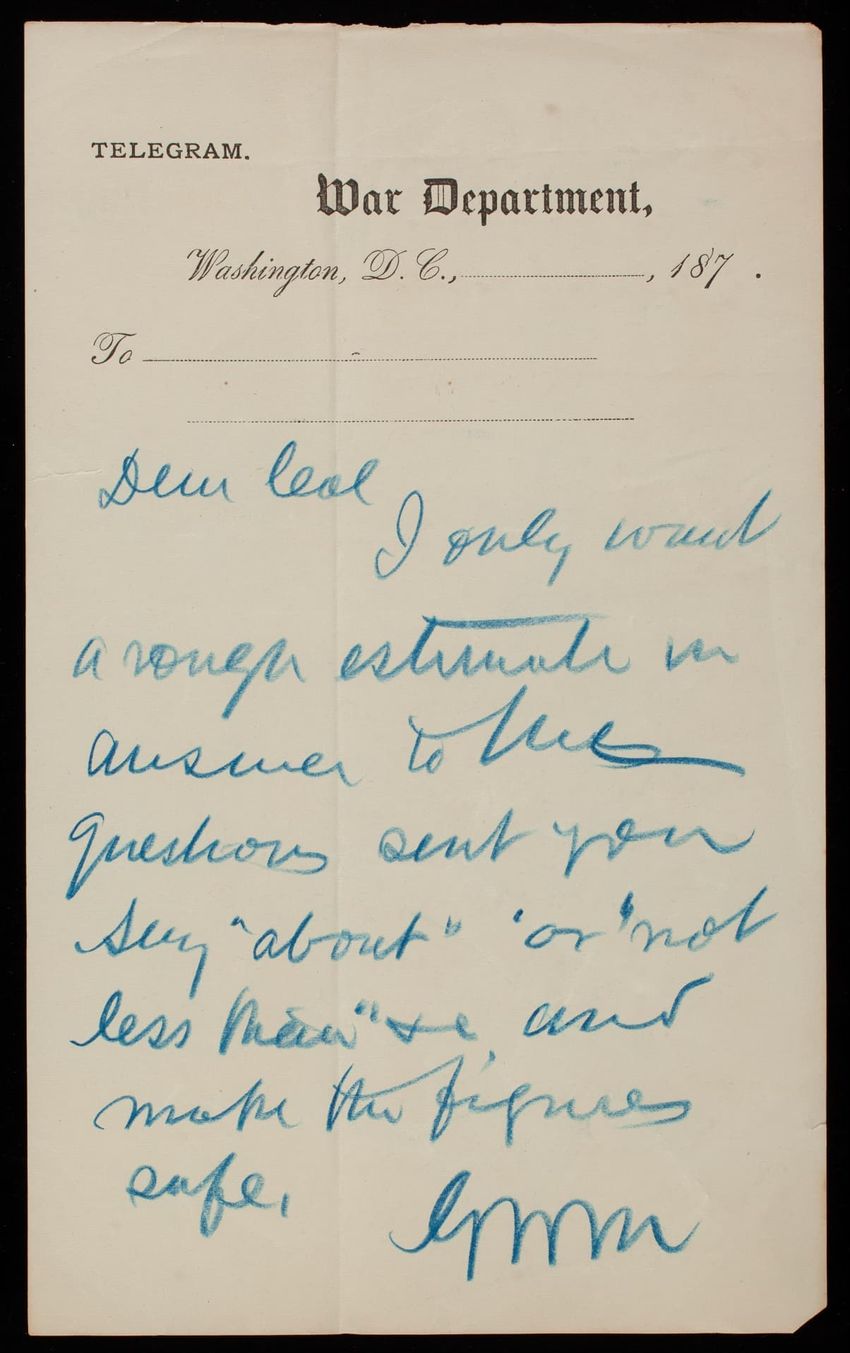 TELEGRAM.
War Department,
Washington, D. C., , 187 .
To
Dear Col
I only want
a rough estimate in
answer to the
questions sent you
Say "about" "or "not
less than" &c and
make the figures
safe.